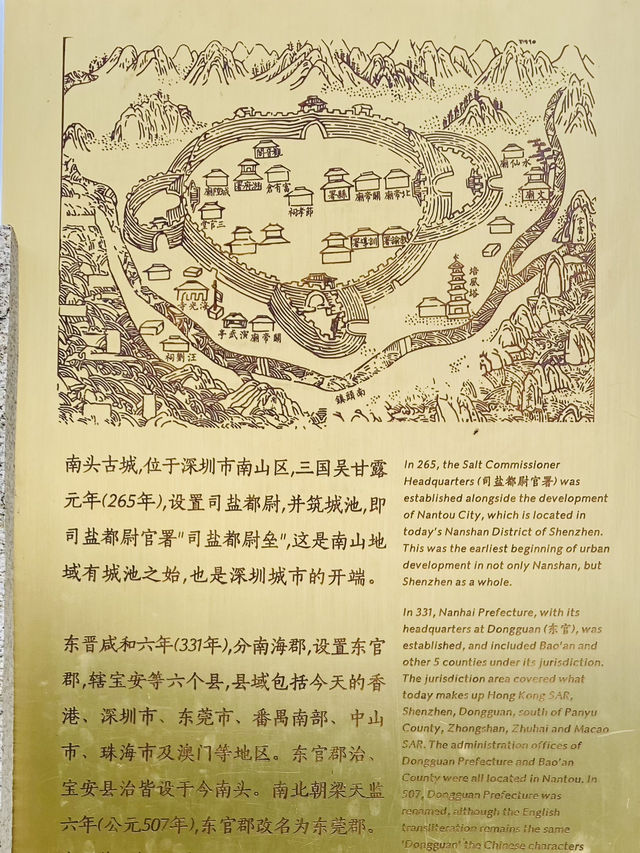 水仙廟
文廟
官富山
城隍廟
富有倉
節孝祠
縣署
關帝廟
北帝廟
三官堂
訓導署
教諭署
培風塔
演武亭
關帝廟
汪劉祠
南頭鎮
南头古城,位于深圳市南山区,三国吴甘露
元年(265年),设置司盐都尉,并筑城池,即
司盐都尉官署"司盐都尉垒",这是南山地
域有城池之始,也是深圳城市的开端。
东晋咸和六年(331年),分南海郡,设置东官
郡,辖宝安等六个县,县域包括今天的香
港、深圳市、东莞市、番禺南部、中山
市、珠海市及澳门等地区。东官郡治、
宝安县治皆设于今南头。南北朝梁天监
六年(公元507年),东官郡改名为东莞郡。
In 265, the Salt Commissioner
Headquarters (司盐都尉官署) was
established alongside the development
of Nantou City, which is located in
today's Nanshan District of Shenzhen.
This was the earliest beginning of urban
development in not only Nanshan, but
Shenzhen as a whole.
In 331, Nanhai Prefecture, with its
headquarters at Dongguan (东官), was
established, and included Bao'an and
other 5 counties under its jurisdiction.
The jurisdiction area covered what
today makes up Hong Kong SAR,
Shenzhen, Dongguan, south of Panyu
County, Zhongshan, Zhuhai and Macao
SAR. The administration offices of
Dongguan Prefecture and Bao'an
County were all located in Nantou. In
507, Dongguan Prefecture was
renamed, although the English
transliteration remains the same
'Dongguan' the Chinese characters